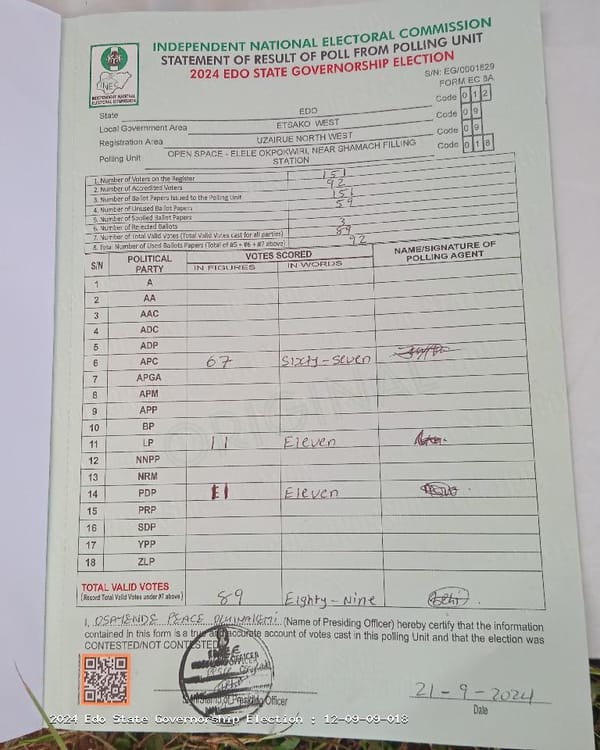 INDEPENDENT NATIONAL ELECTORAL COMMISSION
STATEMENT OF RESULT OF POLL FROM POLLING UNIT
2024 EDO STATE GOVERNORSHIP ELECTION
INEC
INDEPENDENT NATIONAL ELECTORAL COMMISSION
S/N: EG/0001629
FORM EC 8A
State EDO Code 012
Local Government Area ETSAKO WEST Code 09
Registration Area UZAIRUE NORTH WEST Code 09
Polling Unit OPEN SPACE - ELELE OKPOKWIRI, NEAR SHAMACH FILLING STATION Code 018
1. Number of Voters on the Register 151
2. Number of Accredited Voters 92
3. Number of Ballot Papers Issued to the Polling Unit 151
4. Number of Unused Ballot Papers 59
5. Number of Spoiled Ballot Papers
6. Number of Rejected Ballots 3
7. Number of Total Valid Votes (Total Valid Votes cast for all parties) 89
8. Total Number of Used Ballots Papers (Total of #5 + #6 + #7 above) 92
S/N POLITICAL PARTY VOTES SCORED NAME/SIGNATURE OF POLLING AGENT
IN FIGURES IN WORDS
1 A
2 AA
3 AAC
4 ADC
5 ADP
6 APC 67 Sixty-Seven
7 APGA
8 APM
9 APP
10 BP
11 LP 11 Eleven
12 NNPP
13 NRM
14 PDP 11 Eleven
15 PRP
16 SDP
17 YPP
18 ZLP
ORIGINAL
TOTAL VALID VOTES 89 Eighty-Nine
(Record Total Valid Votes under #7 above)
I, PEACE (Name of Presiding Officer) hereby certify that the information
contained in this form is a true and accurate account of votes cast in this polling Unit and that the election was
CONTESTED/NOT CONTESTED
INEC
Officer
21-9-2024
Date
2024 Edo State Governorship Election : 12-09-09-018